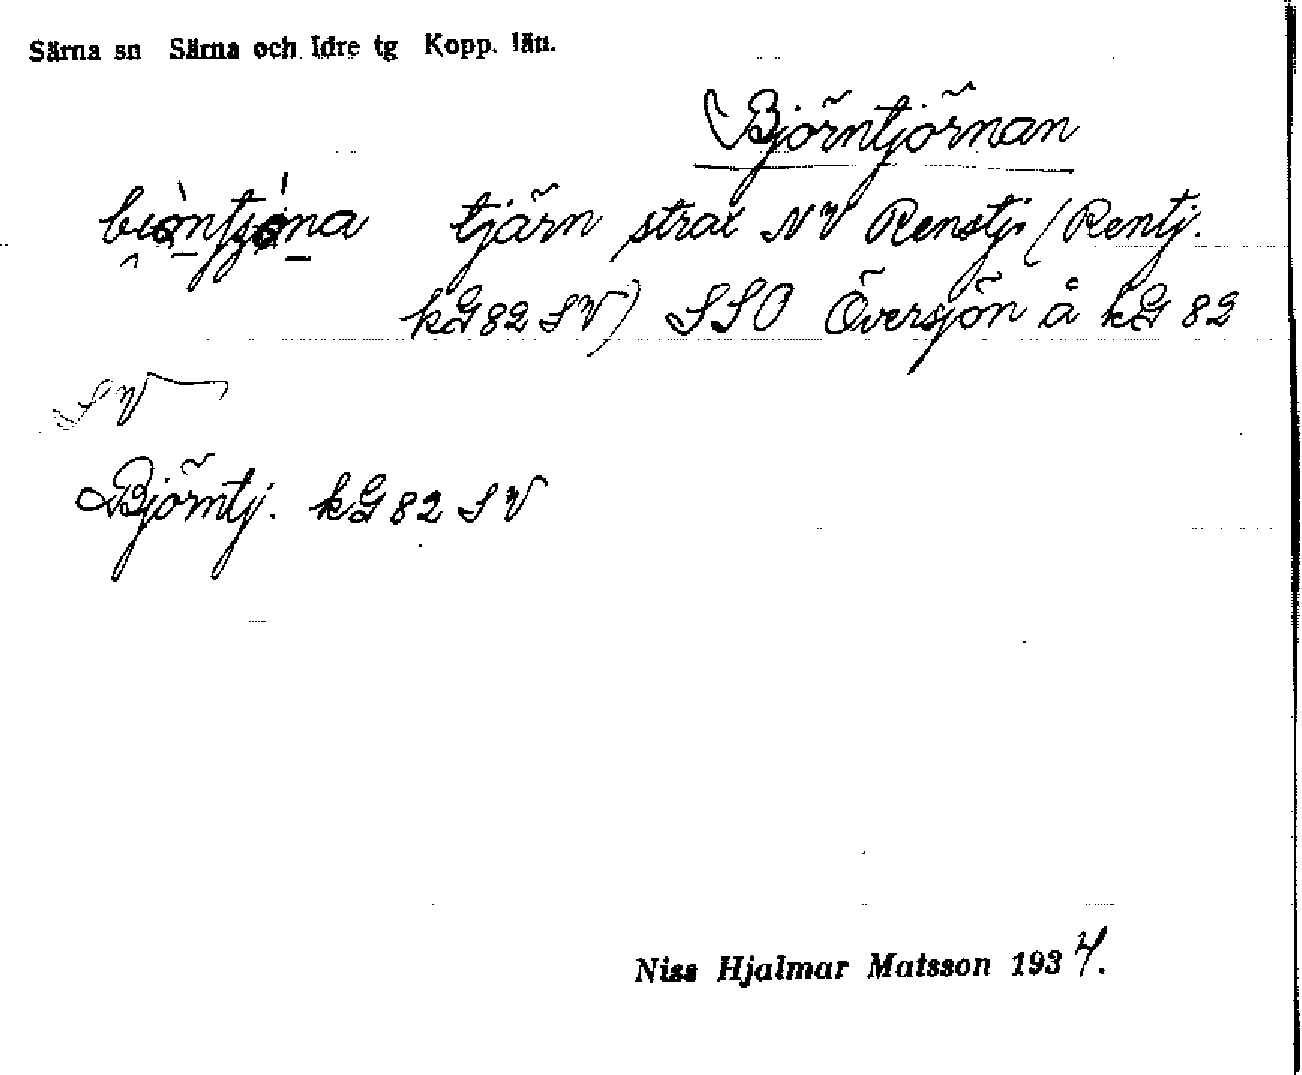 Särna sn Särna och Idre tg Kopp. län.
Björntjörnan
tjärn strax NV Renstj. (Rentj.
kG82SV) SSO Översjön å kG 82
SV
Björntj. kG82 SV
Niss Hjalmar Matsson 1934.